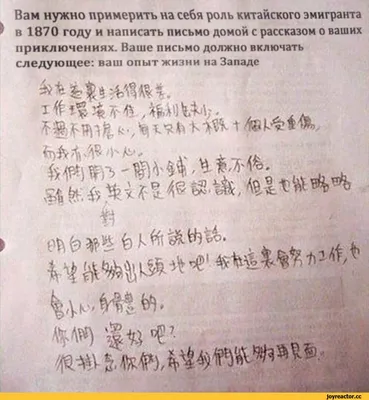 Вам нужно примерить на себя роль китайского эмигранта
в 1870 году и написать письмо домой с рассказом о ваших
приключениях. Ваше письмо должно включать
следующее: ваш опыт жизни на Западе
我在這裏生活得很差。
工作環境不佳，福利也夠少。
不過不用擔心，每天只有大概十個人受重傷，
而我有很小心。
我們開了一間小鋪，生意不俗。
雖然我英文不是很認識，但是也能略略
對
明白那些白人所說的話。
希望能夠出人頭地吧！我在這裏會努力工作，也
會小心身體的。
你們還好吧？
很掛念你們，希望我們能夠再見面。
joyreactor.cc